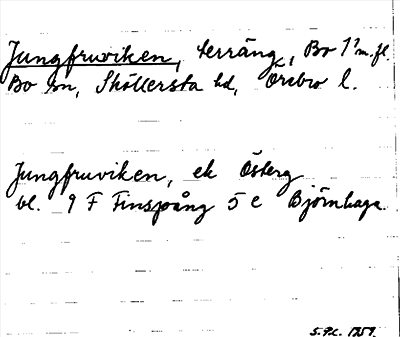 Jungfruviken, terräng, Bo 1² m.fl.
Bo sn, Sköllersta hd, Örebro l.
Jungfruviken, ek Österg
bl. 9 F Finspång 5 e Björnhaga
1959.